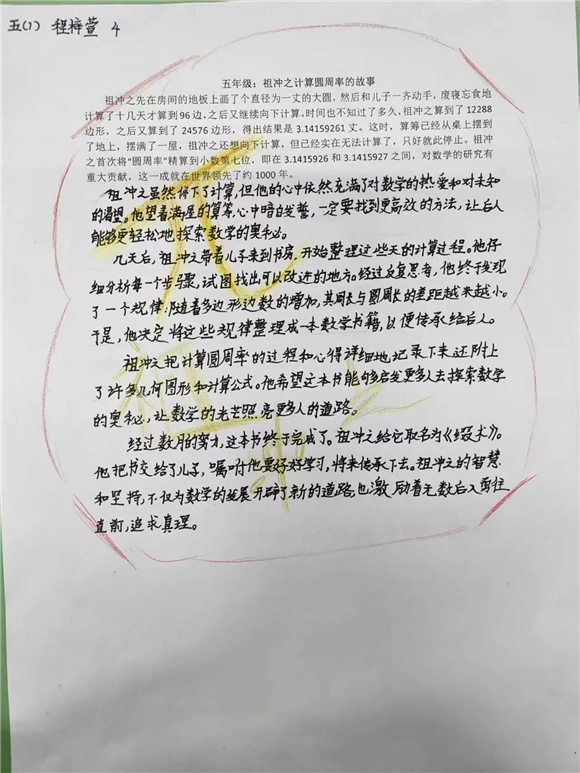 五(1) 程梓萱 4
五年级：祖冲之计算圆周率的故事
祖冲之先在房间的地板上画了个直径为一丈的大圆，然后和儿子一齐动手，废寝忘食地
计算了十几天才算到96边，之后又继续向下计算。时间也不知过了多久，祖冲之算到了12288
边形，之后又算到了24576边形，得出结果是3.14159261丈。这时，算筹已经从桌上摆到
了地上，摆满了一屋，祖冲之还想向下计算，但已经实在无法计算了，只好就此停止。祖冲
之首次将“圆周率”精算到小数第七位，即在3.1415926和3.1415927之间，对数学的研究有
重大贡献，这一成就在世界领先了约1000年。
祖冲之虽然停下了计算，但他的心中依然充满了对数学的热爱和对未知
的渴望。他望着满屋的算筹，心中暗自发誓，一定要找到更高效的方法，让后人
能够更轻松地探索数学的奥秘。
几天后，祖冲之带着儿子来到书房，开始整理这些天的计算过程。他仔
细分析每一个步骤，试图找出可以改进的地方。经过反复思考，他终于发现
了一个规律：随着多边形边数的增加，其周长与圆周长的差距越来越小。
于是，他决定将这些规律整理成一本数学书籍，以便传承给后人。
祖冲之把计算圆周率的过程和心得详细地记录下来，还附上
了许多几何图形和计算公式。他希望这本书能够启发更多人去探索数学
的奥秘，让数学的光芒照亮更多人的道路。
经过数月的努力，这本书终于完成了。祖冲之给它取名为《缀术》。
他把书交给了儿子，嘱咐他要好好学习，将来传承下去。祖冲之的智慧
和坚持，不仅为数学的发展开辟了新的道路，也激励着无数后人勇往
直前，追求真理。